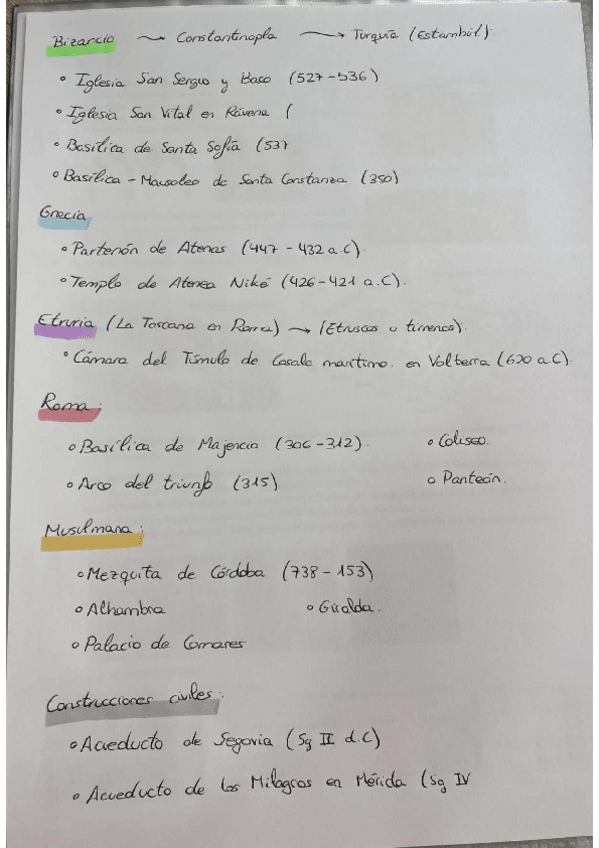 Bizancio → Constantinopla → Turquía (Estambul).
• Iglesia San Sergio y Baco (527-536)
• Iglesia San Vital en Rávena (
• Basílica de Santa Sofía (537
• Basílica - Mausoleo de Santa Constanza (350)
Grecia
• Partenón de Atenas (447-432 a.C).
• Templo de Atenea Niké (426-421 a.C).
Etruria (La Toscana en Roma) → (Etruscos o tirrenos).
• Cámara del Túmulo de Casale marítimo. en Volterra (620 a.C).
Roma:
• Basílica de Majencio (306-312). • Coliseo.
• Arco del triunfo (315) • Panteón.
Musulmana:
• Mezquita de Córdoba (738-153)
• Alhambra • Giralda.
• Palacio de Comares
Construcciones civiles:
• Acueducto de Segovia (Sg II d.C)
• Acueducto de los Milagros en Mérida (Sg IV